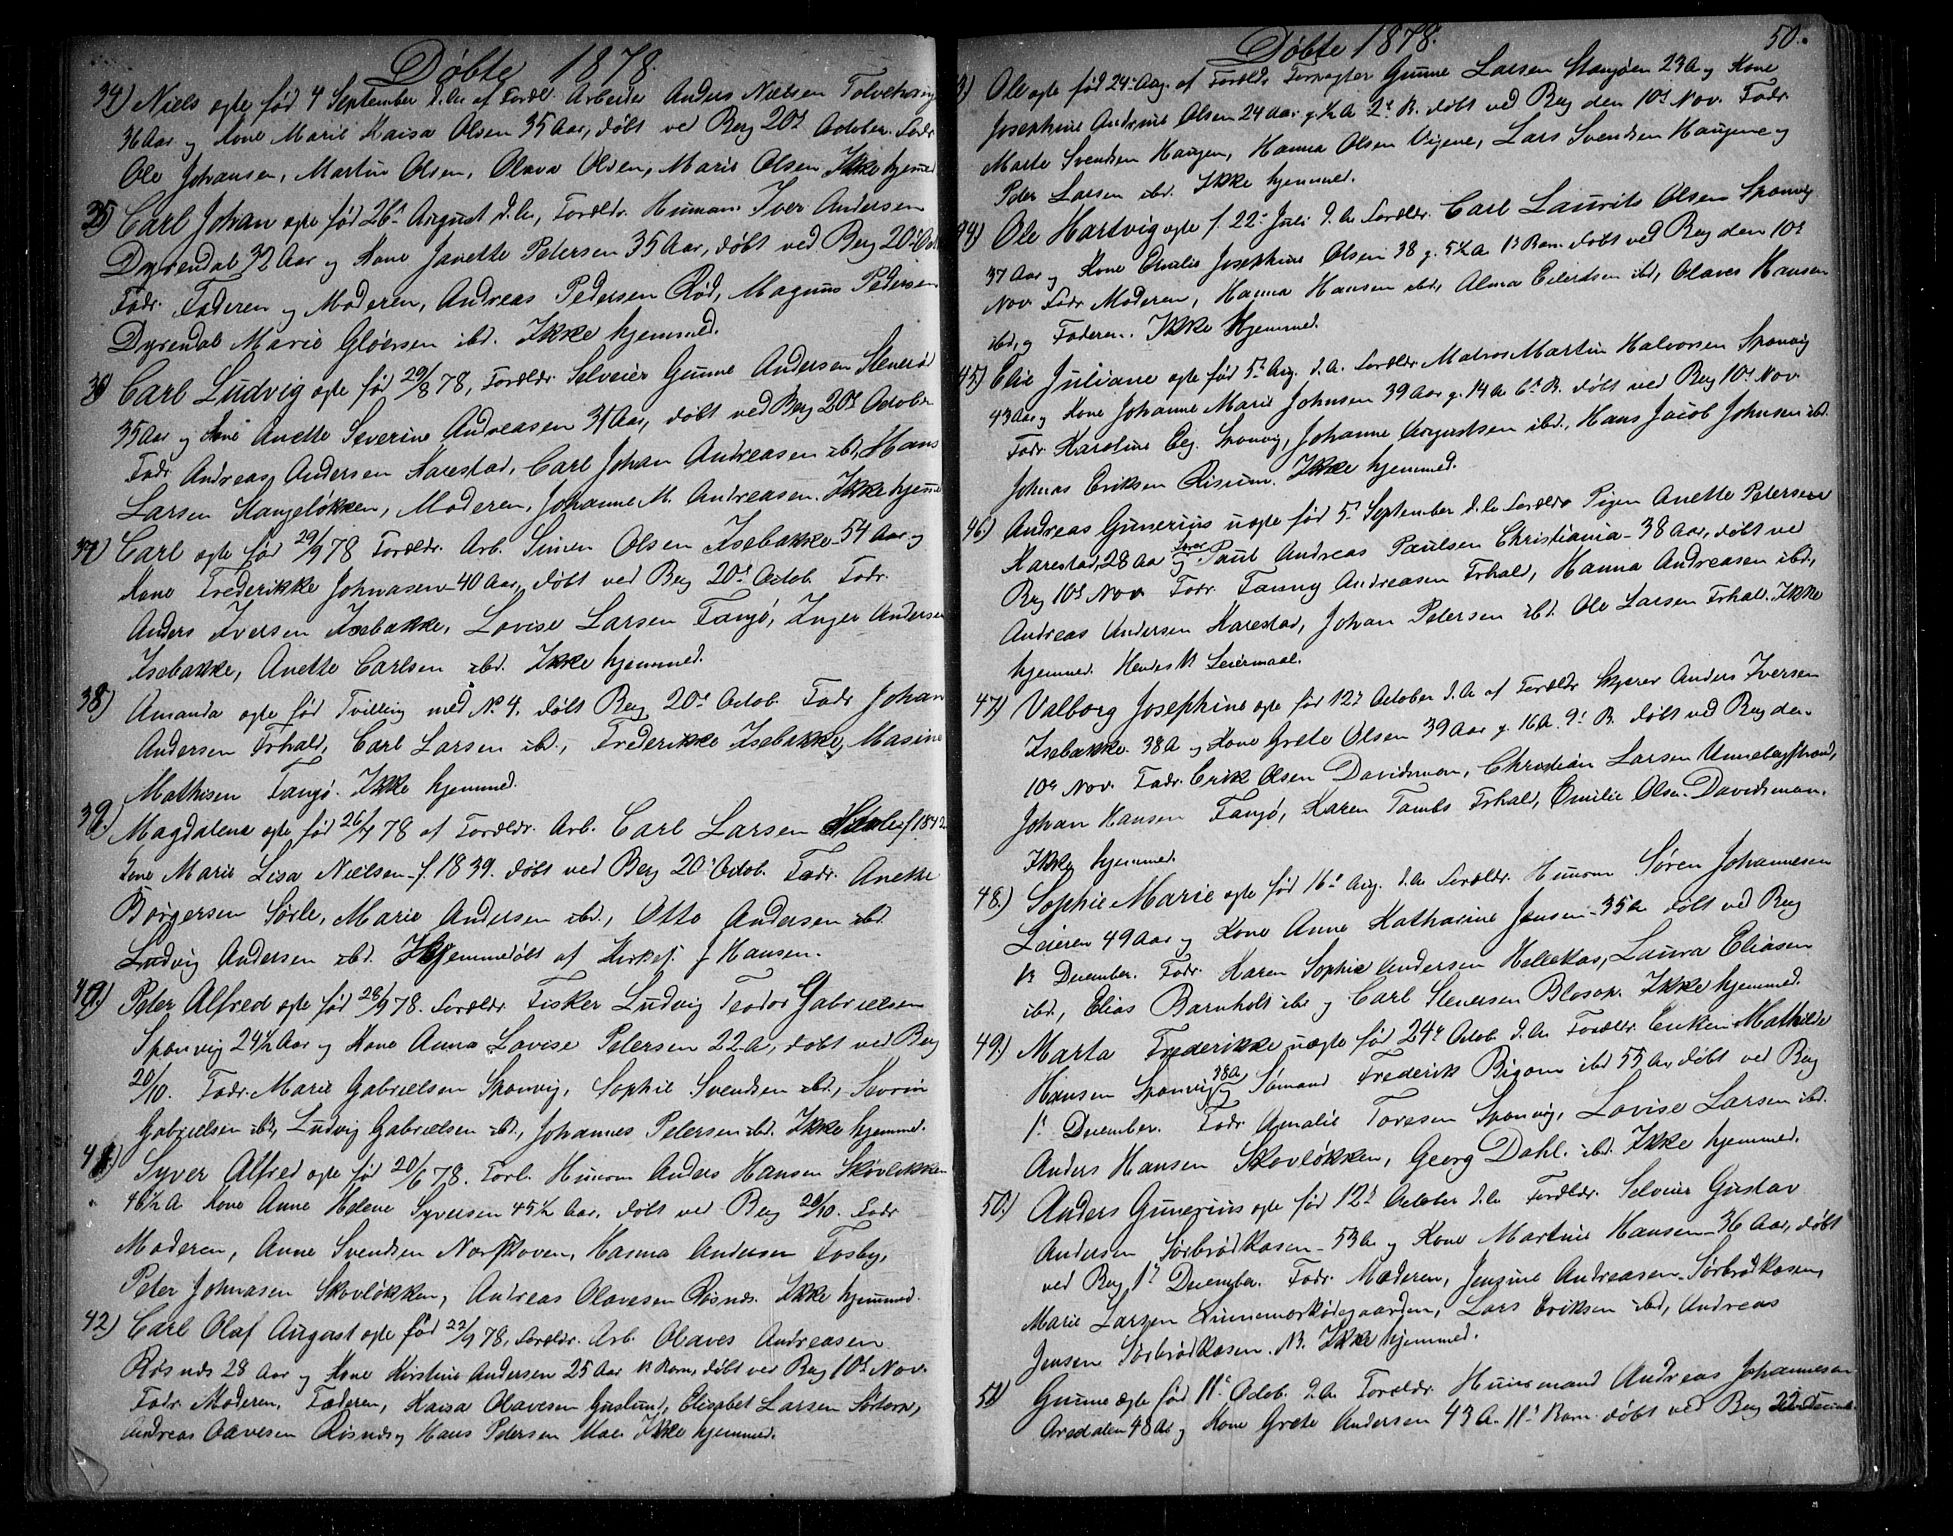 Døbte 1878.
34) Niels egte født 4 September d.A. af Forældr. Arbeider Anders Nielsen
36 Aar og Kone Marie Kaisa Olsen 35 Aar, døbt ved Berg 20de October. Fadr
Ole Johansen, Martin Olsen, Olava Olsen, Marie Olsen. Ikke hjemmed
35) Carl Johan egte født 26de August d.A., Forældr. Husman. Iver Andersen
Dyrendal 32 Aar og Kone Janette Petersen 35 Aar, døbt ved Berg 20de Oct
Fadr. Faderen og Moderen, Andreas Pedersen Rød, Magnus Pedersen
Dyrendal Marie Gløersen ibd. Ikke hjemmed.
36 Carl Ludvig egte født 29/8 78, Forældr. Selveier Gunne Andersen Stenerød
35 Aar og Kone Anette Severine Andreasen 31 Aar, døbt ved Berg 20de Octob.
Fadr. Andreas Andersen Karestad, Carl Johan Andreasen ibd, Hans
Larsen Stangeløkken, Moderen, Johanne M. Andreasen. Ikke hjemme
37) Carl egte født 29/9 78 Forældr. Arb. Simen Olsen Isebakke 54 Aar og
Kone Frederikke Johnasen 40 Aar, døbt ved Berg 20de Octob. Fadr.
Anders Iversen Isebakke, Lovise Larsen Tangø, Inger Andersen
Isebakke, Anette Carlsen ibd. Ikke hjemmed.
38) Amanda egte født Tvilling med No 4. døbt Berg 20de Octob. Fadr Johan
Andersen Frhald, Carl Larsen ibd., Frederikke Isebakke, Masine
Mathisen Tangø. Ikke hjemmed.
39.) Magdalena egte født 26/7 78 af Forældr. Arb. Carl Larsen f 1842
Kone Marie Lisa Nielsen f. 1839. døbt ved Berg 20de Octob. Fadr. Anette
Børgersen Sørle, Marie Andersen ibd., Otto Andersen ibd
Ludvig Andersen ibd. Hjemmedøbt af Kirkes. J Hansen.
40.) Peter Alfred egte født 28/9 78. Forældr. Fisker Ludvig Teodor Gabrielsen
Sponvig 24½ Aar og Kone Anna Lovise Petersen 22 A, døbt ved Berg
20/10. Fadr. Marie Gabrielsen Sponvig, Sophie Svendsen ibd., Severin
Gabrielsen ibd, Ludvig Gabrielsen ibd., Johannes Petersen ibd. Ikke hjemmed.
41) Syver Alfred egte født 20/6 78. Forl. Husm Anders Hansen Skovløkken
46½ A Kone Anne Helene Syversen 45½ Aar. døbt ved Berg 20/10. Fadr
Moderen, Anne Svendsen Norskoven, Hanna Andersen Fosby,
Peter Johnasen Skovløkken, Andreas Olavesen Røsnes. Ikke hjemmed.
42) Carl Olaf August egte født 22/9 78, Forældr. Arb. Olaves Andreasen
Røsnes 28 Aar og Kone Kirstine Andersen 25 Aar Barn, døbt ved Berg 10de Nov.
Fadr Moderen, Faderen, Kaisa Olavesen Guslund, Elisabet Larsen
Andreas Olavesen Røsnes og Hans Petersen Ikke hjemmed.
Døbte 1878. 50.
Ole egte født 24de Aug. af Forældr Forpagter Gunne Larsen Stangøen 23 A og Kone
Josephine Andrine Olsen 24 Aar g. ½ A 2det B. døbt ved Berg den 10de Nov. Fadr.
Marte Svendsen Haugen, Hanna Olsen Vigene, Lars Svendsen Haugene og
Peter Larsen ibd. Ikke hjemmed.
44) Ole Hartvig egte f. 22de Juli d.A. Forældr. Carl Laurits Olsen Sponvig
37 Aar og Kone Emilie Josephine Olsen 38 g. 5½ A 1ste Barn døbt ved Berg den 10de
Nov. Fadr Moderen, Hanna Hansen ibd, Alma Eilertsen ibd, Olaves Hansen
ibd. og Faderen. Ikke Hjemmed.
45) Elise Juliane egte født 5te Aug. d.A. Forældr Matros Martin Halvorsen Sponvig
43 Aar og Kone Johanne Marie Johnsen 39 Aar g. 14 A 6te B. døbt ved Berg 10de Nov.
Fadr Karoline Eeg. Sponvig, Johanne Augustsen ibd., Hans Jacob Johnsen ibd.
Johnas Eriksen Risum. Ikke hjemmed.
46) Andreas Gunerius uegte født 5te September d.A. Forældre Pigen Anette Petersen
Karestad, 28 Aar og Paul Andreas Paulsen Christiania 38 Aar, døbt ved
Berg 10de Nov. Fadr. Fanny Andreasen Frhald, Hanna Andreasen ibd,
Andreas Andersen Karestad, Johan Petersen ibd. Ole Larsen Frhal. Ikke
hjemmed. Hendes 1ste Leiermaal.
47) Valborg Josephine egte født 12te October d.A. af Forældr Anders Iversen
Isebakke 38 A og Kone Grete Olsen 39 Aar g. 16 A. 9de B. døbt ved Berg den
10de Nov. Fadr. Erik Olsen Davidsmon, Christian Larsen
Johan Hansen Tangø, Karen Tambs Frhal, Emilie Olsen Davidsmon.
Ikke hjemmed.
48.) Sophie Marie egte født 16de Aug. d.A. Forældr. Husm Søren Johannesen
Leieren 49 Aar og Kone Anne Katharine Jensen 35 A døbt ved Berg
1ste December. Fadr. Karen Sophie Andersen Hellekas, Laura Eliasen
ibd, Elias Barnholt ibd og Carl Stenersen Blosop. Ikke hjemmed.
49.) Marta Frederikke uegte født 24de Octob. d.A. Forældr Enken Mathilde
Hansen Sponvig 38 A og Sømand Frederik Bigom ibd 55 A, døbt ved Berg
1ste December. Fadr. Amalie Toresen Sponvig, Lovise Larsen ibd.
Anders Hansen Skovløkken, Georg Dahl ibd. Ikke hjemmed.
50.) Anders Gunerius egte født 12te October d.A. Forældr. Selveier Gustav
Andersen Sørbrødkasen 53 A og Kone Martine Hansen 36 Aar, døbt
ved Berg 1ste December. Fadr. Moderen, Jensine Andreasen Sørbrødkasen,
Marie Larsen Lars Eriksen ibd, Andreas
Jensen Sørbrødkasen. Ikke hjemmed.
51 Gunne egte født 11te Octob. d.A. Forældr. Huusmand Andreas Johannesen
Aredalen 48 A og Kone Grete Andersen 43 A. 11te Barn døbt ved Berg 22de